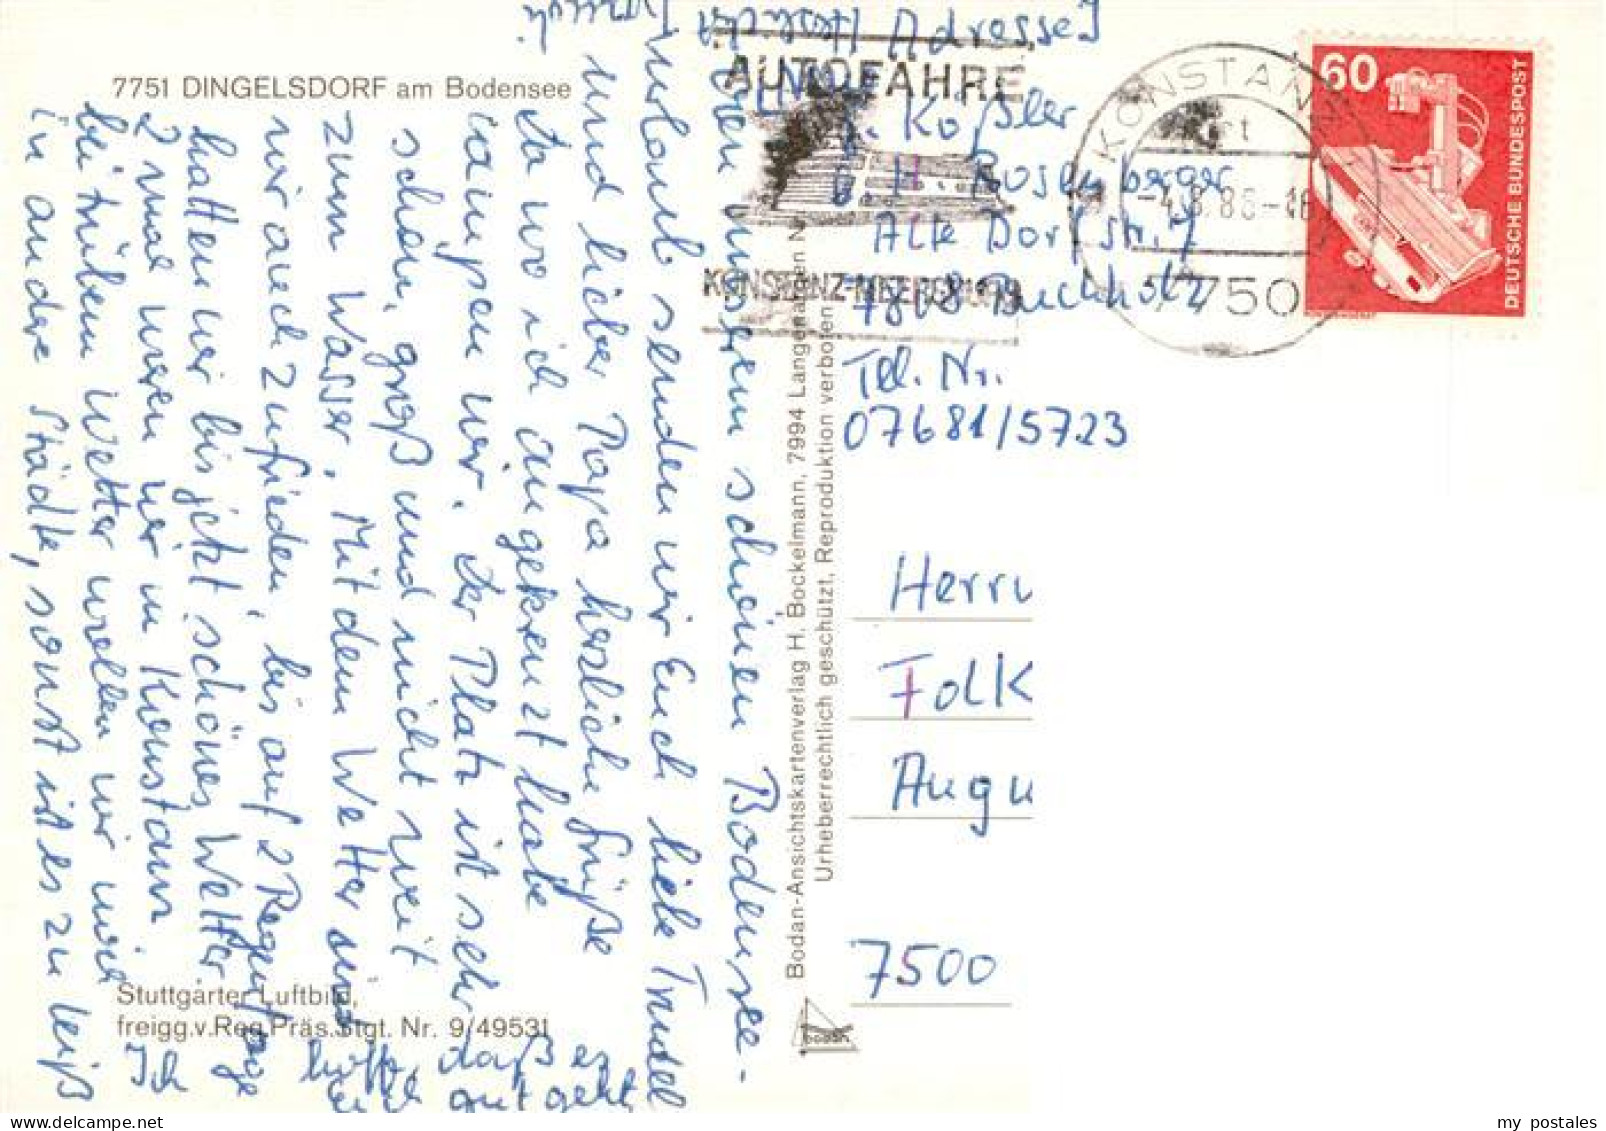 7751 DINGELSDORF am Bodensee
Von unserem schönen Bodensee-
urlaub senden wir Euch liebe Trudel
und lieber Papa herzliche Grüße
Da wo ich angekreuzt habe
campen wir. Der Platz ist sehr
schön, groß und nicht weit
zum Wasser, Mit dem Wetter sind
wir auch zufrieden, bis auf 2 Regentage
hatten wir bis jetzt schönes Wetter.
2 mal waren wir in Konstanz
bei trübem Wetter wollen wir mit
in andere Städte, sonst ist es zu heiß
Ich hoffe, daß es
Euch gut geht,
Stuttgarter Luftbild,
freigg.v.Reg.Präs.Stgt. Nr. 9/49531
Bodan-Ansichtskartenverlag H. Bockelmann, 7994 Langenargen Nr
Urheberrechtlich geschützt, Reproduktion verboten
BODAN
Adresse
Koßler
Rosenberger
Alte Dorfstr. 7
7808 Buchholz
Tel. Nr.
07681/5723
AUTOFÄHRE
KONSTANZ-MEERSBURG
KONSTANZ
-4.8.86-18
7750
60
DEUTSCHE BUNDESPOST
Herrn
Folk
Augu
7500
my postales